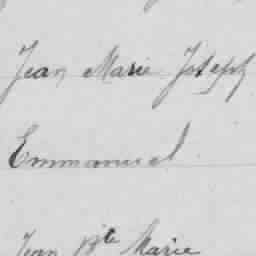 Jean Marie Joseph
Emmanuel
Jean Bte Marie